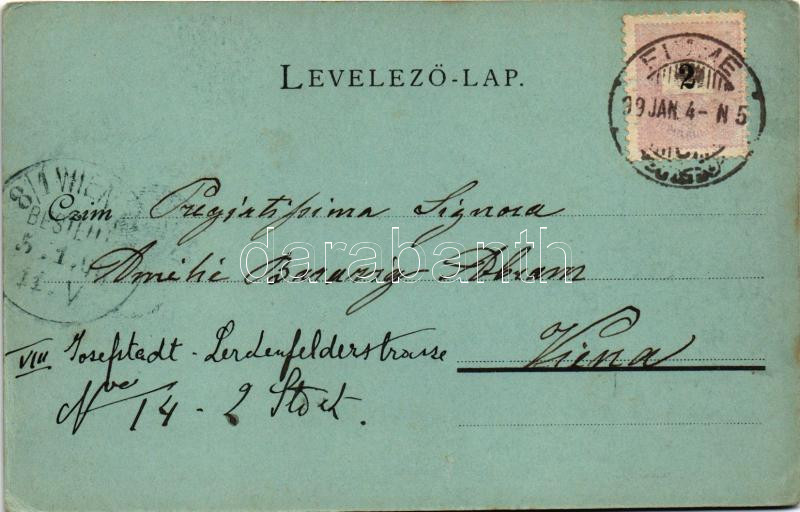 LEVELEZŐ-LAP.
FIUME
2
99 JAN. 4 - N 5
8/1 WIEN
BESTELLT
5. 1.
11. V
Pregiatissima Signora
darabanth
Amélie Abram
VIII Josefstadt - Lerdenfelderstrasse
Viena
Nro 14 - 2 Stock.